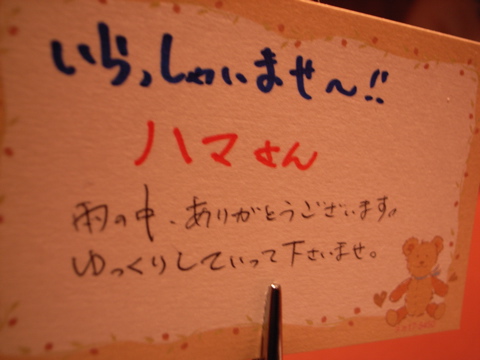 いらっしゃいませ〜!!
ハマさん
雨の中、ありがとうございます。
ゆっくりしていって下さいませ。